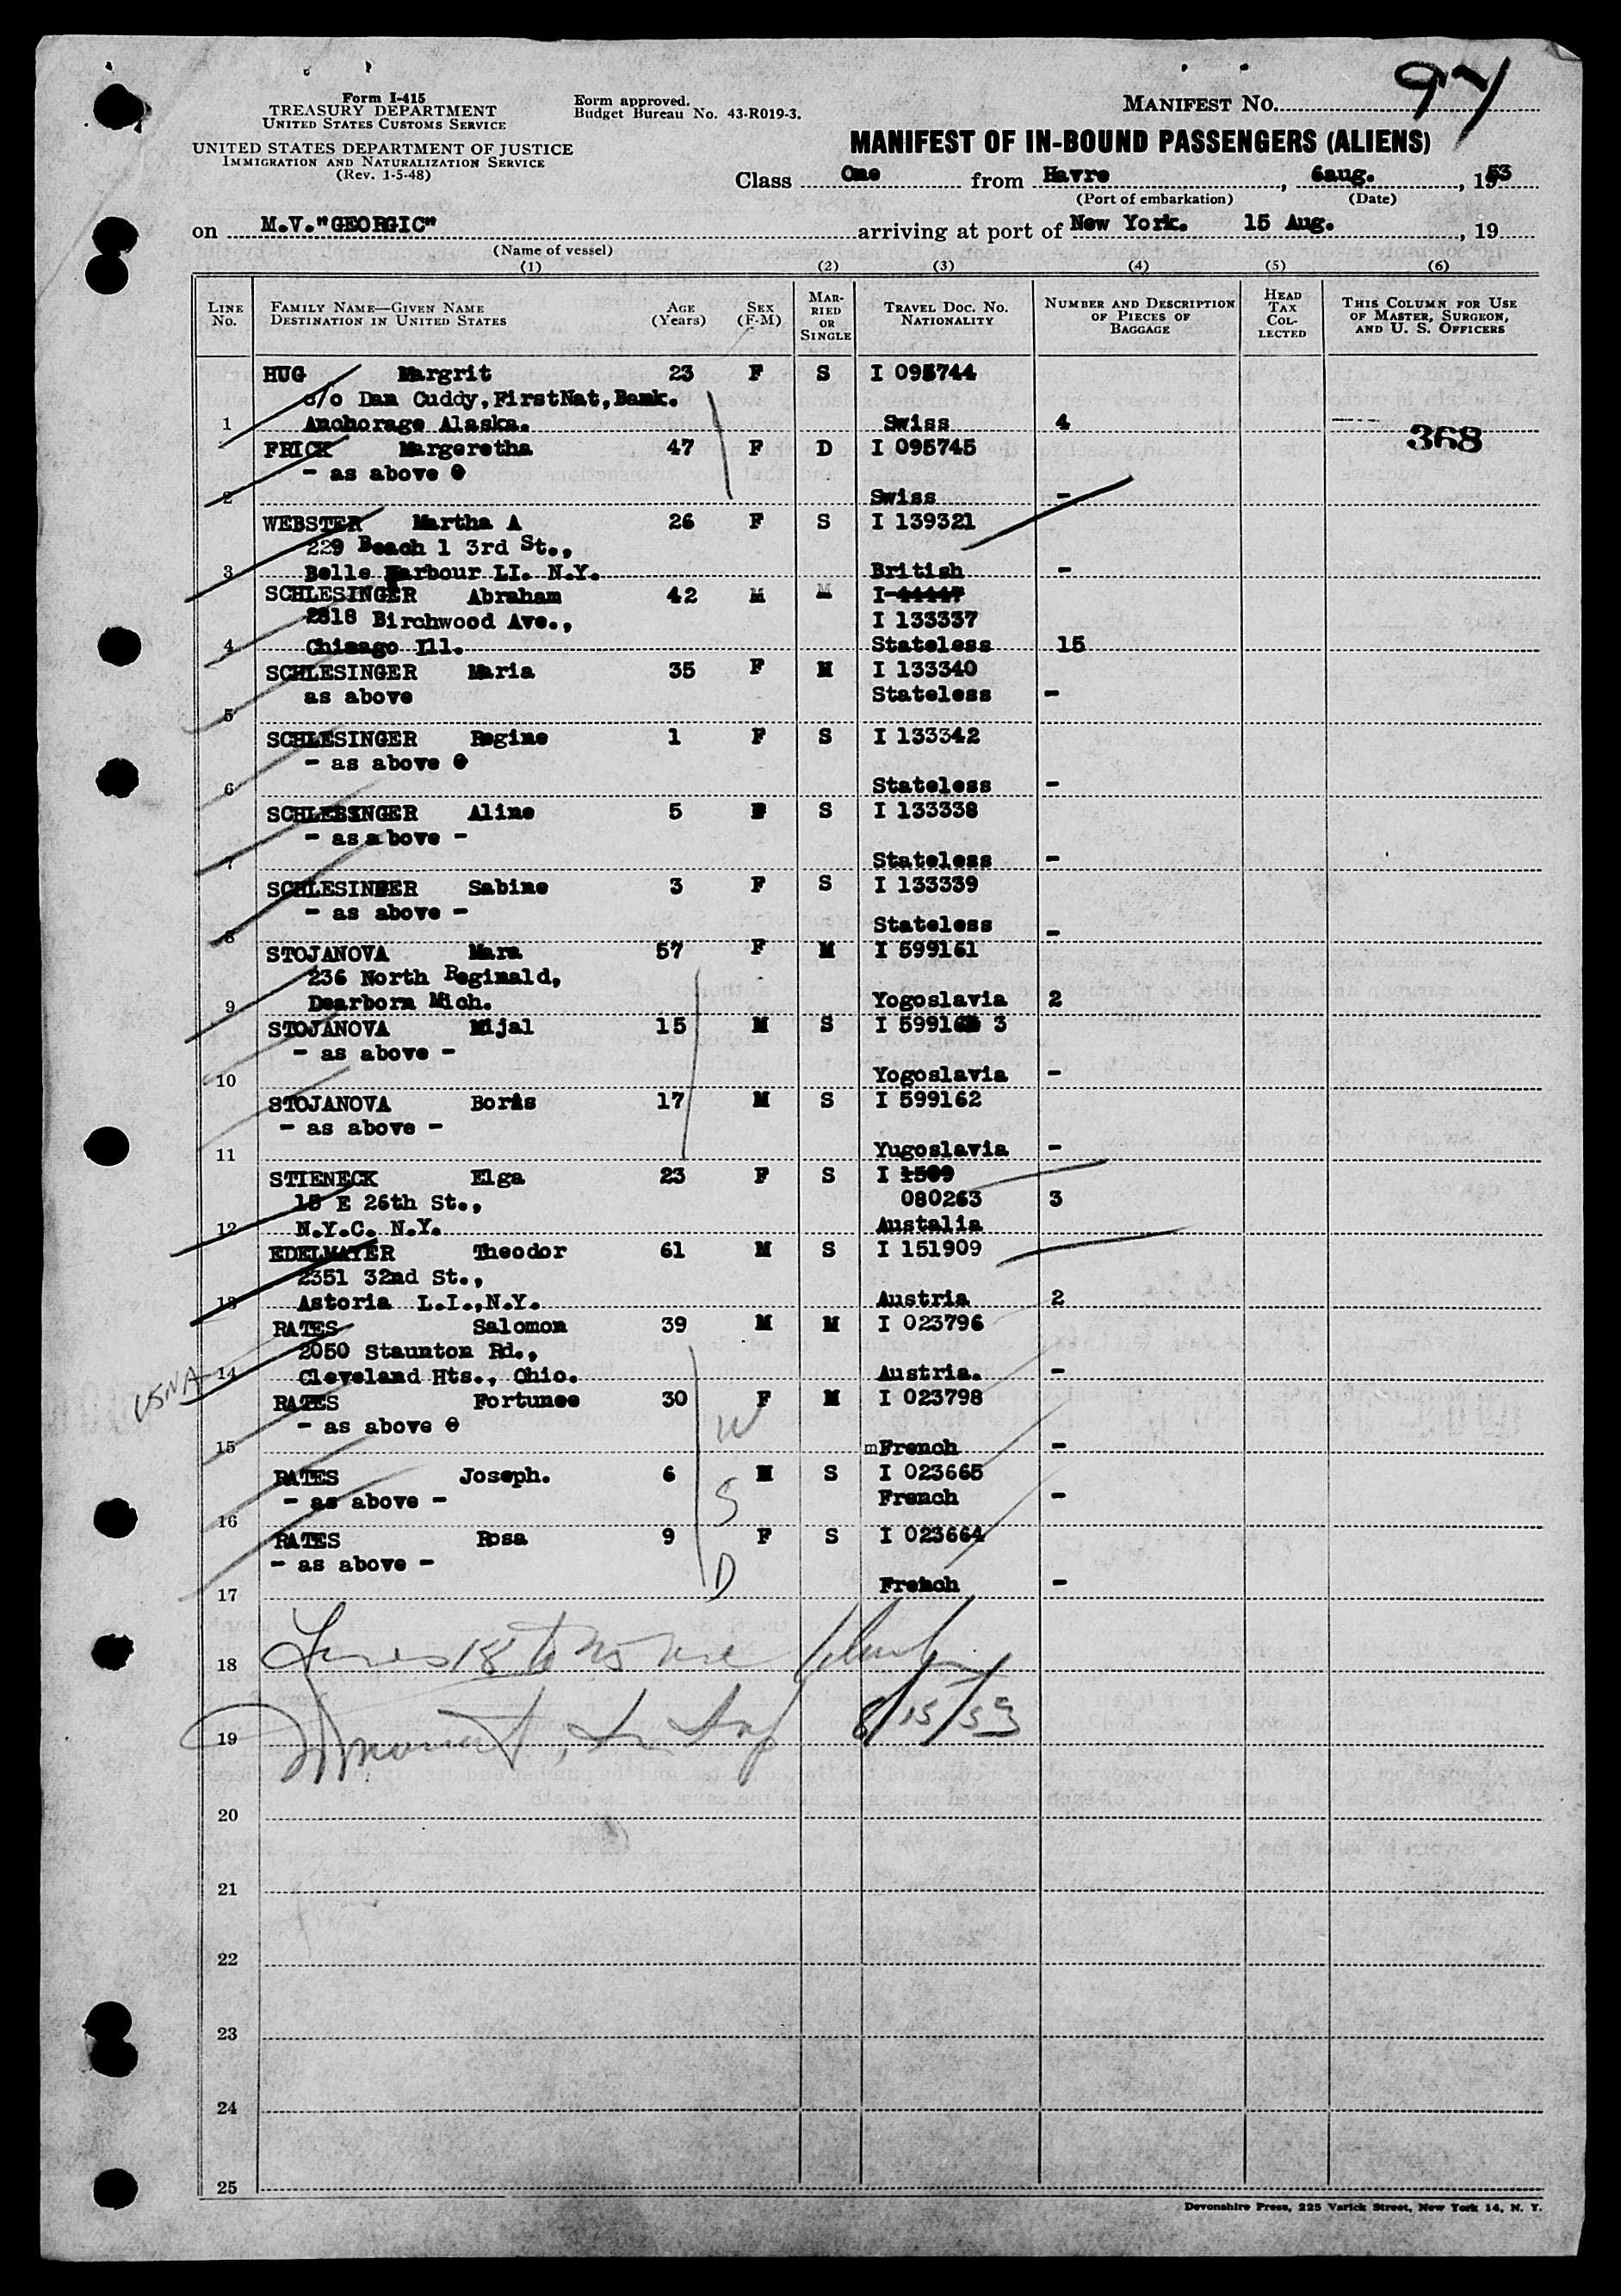 Form I-415
TREASURY DEPARTMENT
UNITED STATES CUSTOMS SERVICE
UNITED STATES DEPARTMENT OF JUSTICE
IMMIGRATION AND NATURALIZATION SERVICE
(Rev. 1-5-48)
Form approved.
Budget Bureau No. 43-R019-3.
MANIFEST NO. 97
MANIFEST OF IN-BOUND PASSENGERS (ALIENS)
Class One from Havre, 6aug., 1953
(Port of embarkation) (Date)
on M.V."GEORGIC" arriving at port of New York. 15 Aug., 19
(Name of vessel)
(1) (2) (3) (4) (5) (6)
LINE No. FAMILY NAME—GIVEN NAME DESTINATION IN UNITED STATES AGE (Years) SEX (F-M) MARRIED OR SINGLE TRAVEL DOC. NO. NATIONALITY NUMBER AND DESCRIPTION OF PIECES OF BAGGAGE HEAD TAX COLLECTED THIS COLUMN FOR USE OF MASTER, SURGEON, AND U. S. OFFICERS
HUG Margrit 23 F S I 095744
c/o Dan Cuddy, FirstNat, Bank.
1 Anchorage Alaska. Swiss 4
368
FRICK Margeretha 47 F D I 095745
- as above
2 Swiss -
WEBSTER Martha A 26 F S I 139321
229 Beach 1 3rd St.,
3 Belle Harbour LI. N.Y. British -
SCHLESINGER Abraham 42 M M I 44447
2818 Birchwood Ave., I 133337
4 Chicago Ill. Stateless 15
SCHLESINGER Maria 35 F M I 133340
as above Stateless -
5
SCHLESINGER Regine 1 F S I 133342
- as above
6 Stateless -
SCHLESINGER Aline 5 F S I 133338
- as above -
7 Stateless -
SCHLESINGER Sabine 3 F S I 133339
- as above -
8 Stateless -
STOJANOVA Mara 57 F M I 599161
236 North Reginald,
9 Dearborn Mich. Yogoslavia 2
STOJANOVA Mijal 15 M S I 59916 3
- as above -
10 Yogoslavia -
STOJANOVA Boris 17 M S I 599162
- as above -
11 Yugoslavia -
STIENECK Elga 23 F S I 1509
15 E 26th St., 080263 3
12 N.Y.C. N.Y. Austalia
EDELMAYER Theodor 61 M S I 151909
2351 32nd St.,
13 Astoria L.I.,N.Y. Austria 2
RATES Salomon 39 M M I 023796
2050 Staunton Rd.,
USNA 14 Cleveland Hts., Ohio. Austria. -
RATES Fortunee 30 F M I 023798
- as above
W
15 mFrench -
RATES Joseph. 6 M S I 023665
- as above - French -
S
16
RATES Rosa 9 F S I 023664
- as above -
D
17 French -
18 Lines 18 to 25 are blank
19 8/15/53
20
21
22
23
24
25
Devonshire Press, 225 Varick Street, New York 14, N. Y.